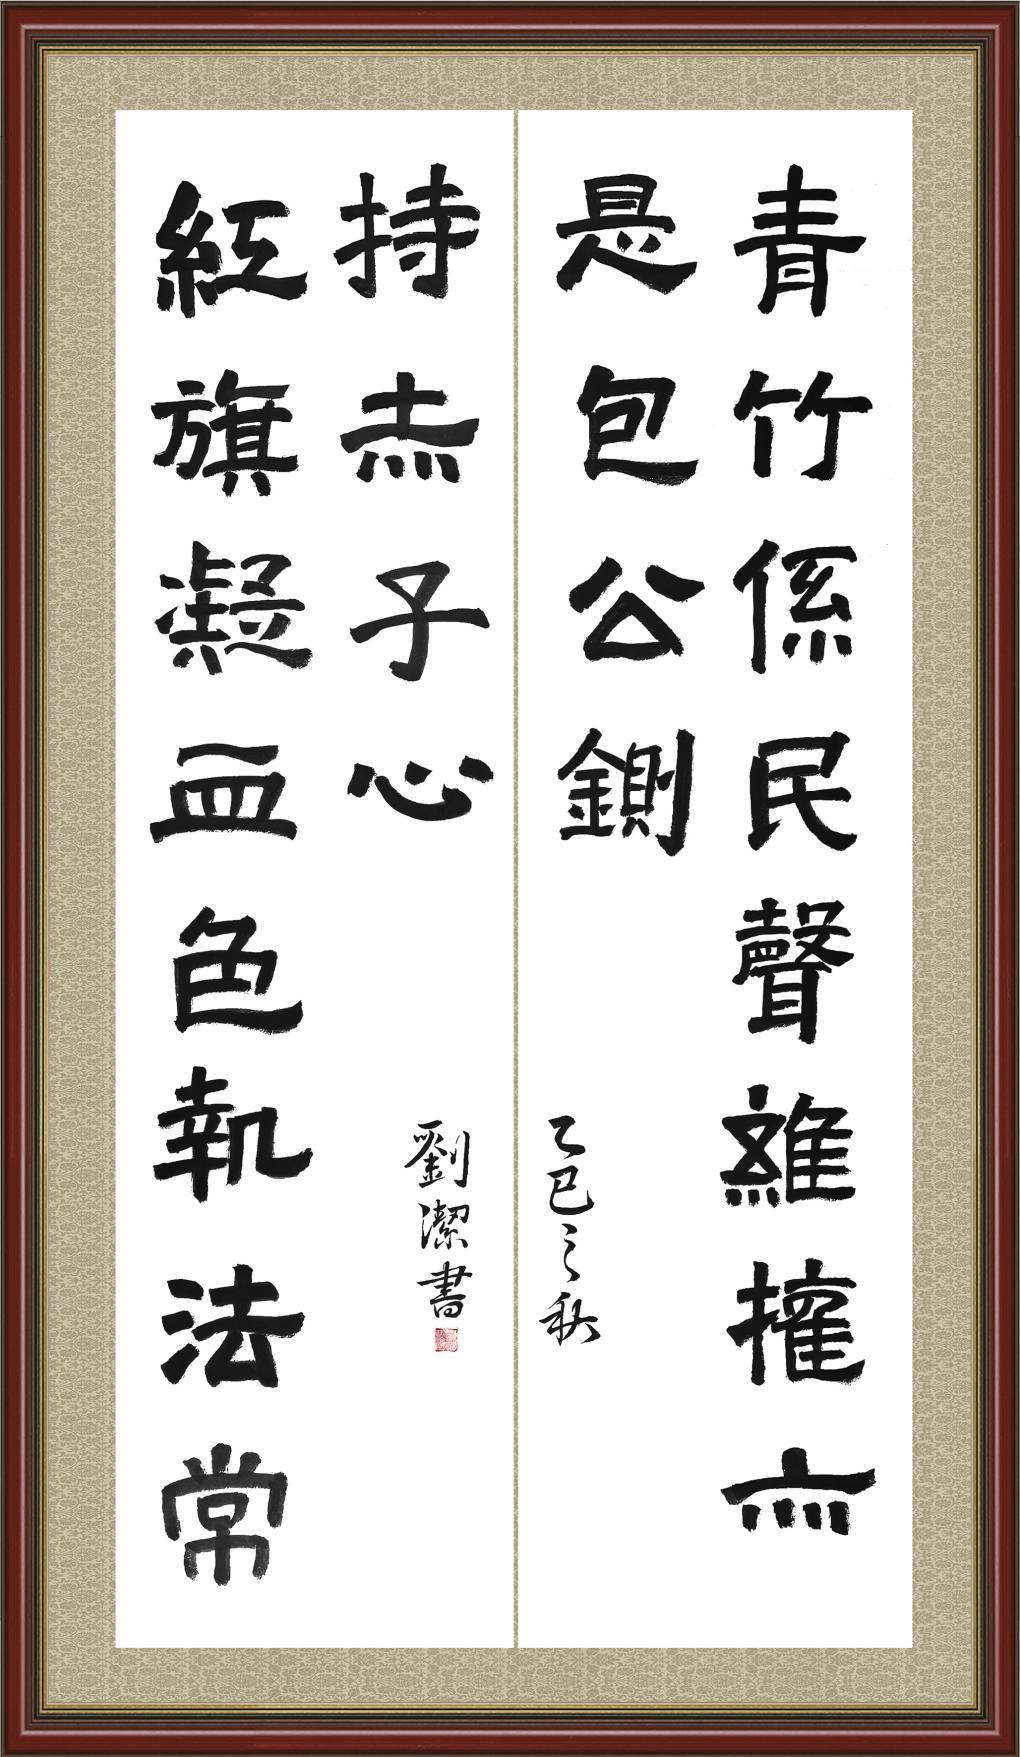 青竹係民聲雖摧亦
是包公鍘
乙巳之秋
紅旗凝血色執法常
持赤子心
劉潔書